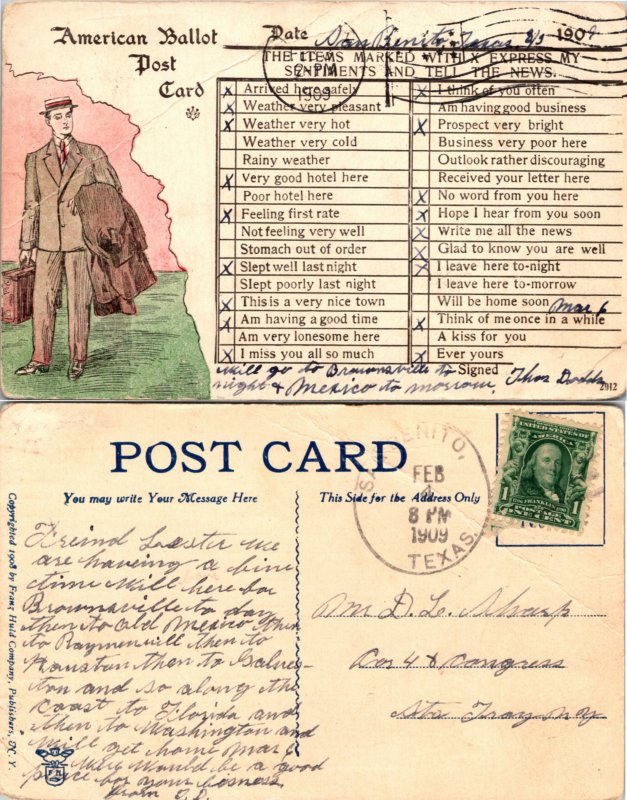 American Ballot
Post
Card
Date San Benito, Texas. 2/3 1909
THE ITEMS MARKED WITH X EXPRESS MY
SENTIMENTS AND TELL THE NEWS.
FEB
2 PM
1909
X Arrived here safely
X Weather very pleasant
X Weather very hot
Weather very cold
Rainy weather
X Very good hotel here
Poor hotel here
X Feeling first rate
Not feeling very well
Stomach out of order
X Slept well last night
Slept poorly last night
X This is a very nice town
X Am having a good time
Am very lonesome here
X I miss you all so much
X I think of you often
Am having good business
X Prospect very bright
Business very poor here
Outlook rather discouraging
Received your letter here
X No word from you here
X Hope I hear from you soon
X Write me all the news
X Glad to know you are well
X I leave here to-night
I leave here to-morrow
Will be home soon Mar 6
X Think of me once in a while
A kiss for you
X Ever yours
Will go to Brownsville to
night & Mexico to morrow.
Signed Thos Dodds
2012
POST CARD
You may write Your Message Here
This Side for the Address Only
Copyrighted 1908 by Franz Huld Company, Publishers, N. Y.
SAN BENITO,
FEB
8 PM
1909
TEXAS.
UNITED STATES OF
AMERICA
1 FRANKLIN 1
POSTAGE
ONE CENT
Freind Lester we
are haveing a fine
time Will here for
Brownsville to day
then to Old Mexico then
to Raymenvill then to
Houston then to Galves-
ton and so along the
coast to Florida and
then to Washington and
Will get home Mar 6
Here would be a good
place for your bisness
from T. D.
Mr D. L. Sharp
Cor 4 & Congress
Str Troy NY